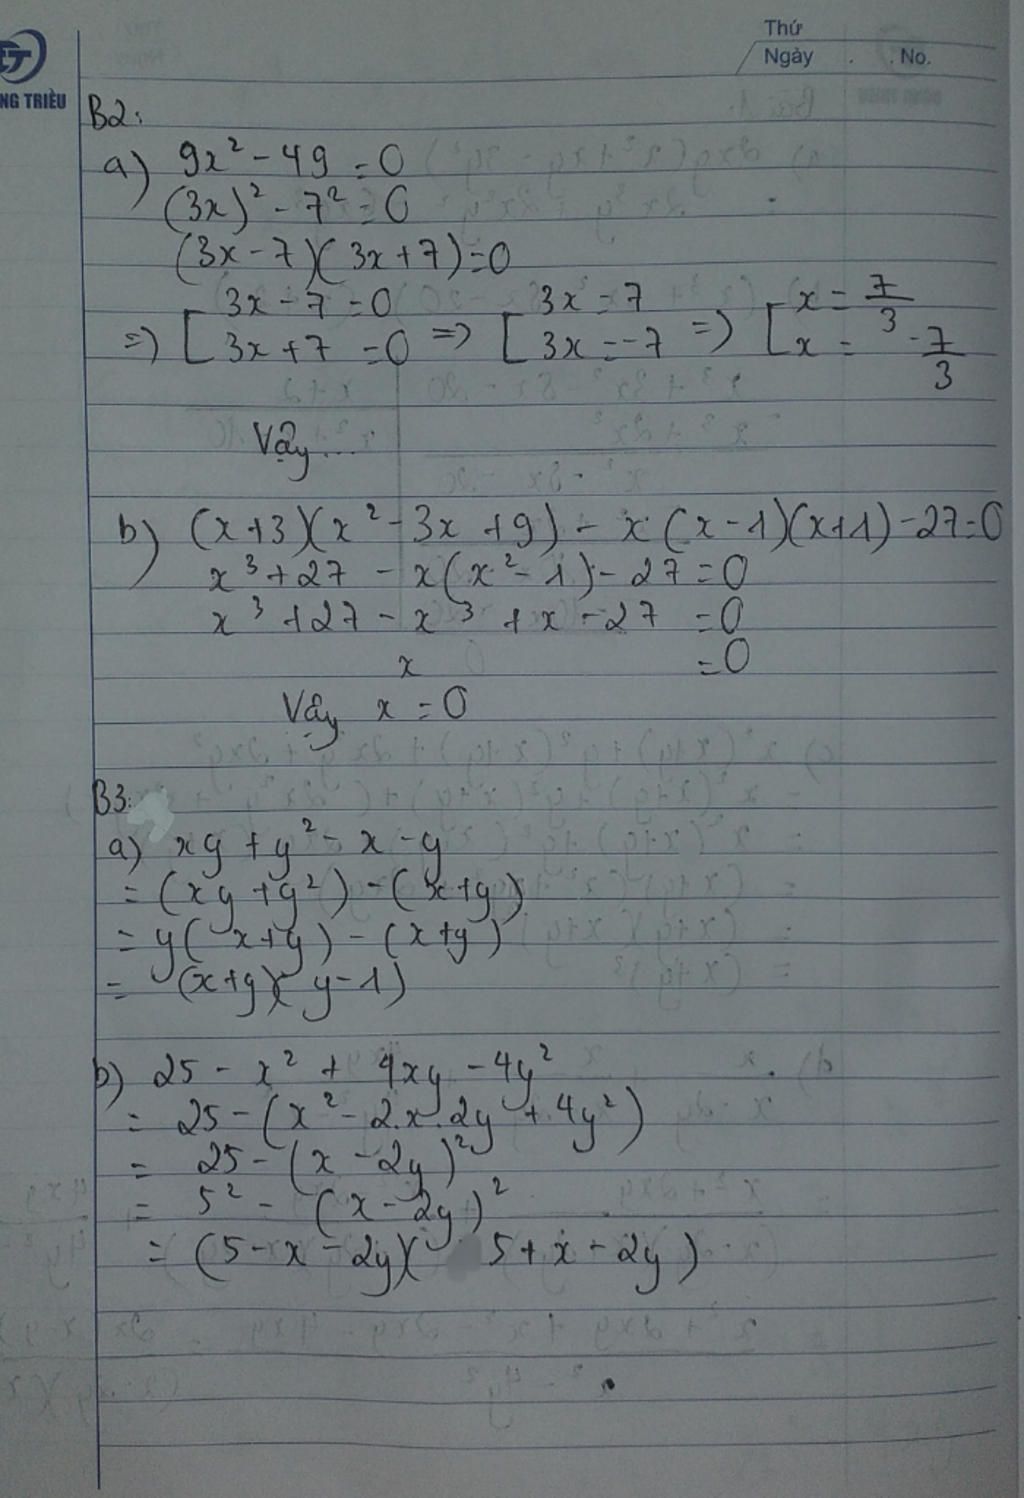 Thứ
Ngày . . No.
NG TRIỀU
B2:
a) 9x² - 49 = 0
(3x)² - 7² = 0
(3x - 7)(3x + 7) = 0
=> [ 3x - 7 = 0 => [ 3x = 7 => [ x = 7/3
3x + 7 = 0 3x = -7 x = -7/3
Vậy...
b) (x + 3)(x² - 3x + 9) - x(x - 1)(x + 1) - 27 = 0
x³ + 27 - x(x² - 1) - 27 = 0
x³ + 27 - x³ + x - 27 = 0
x = 0
Vậy x = 0
B3:
a) xy + y² - x - y
= (xy + y²) - (x + y)
= y(x + y) - (x + y)
= (x + y)(y - 1)
b) 25 - x² + 4xy - 4y²
= 25 - (x² - 2.x.2y + 4y²)
= 25 - (x - 2y)²
= 5² - (x - 2y)²
= (5 - x - 2y)(5 + x - 2y)